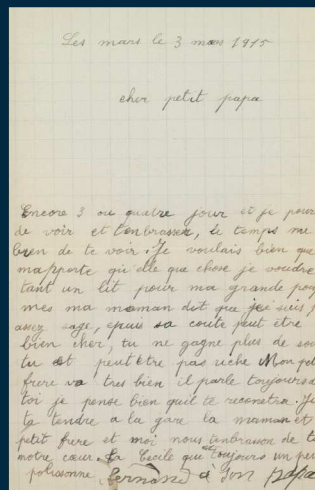 Les mars le 3 mars 1915
cher petit papa
Encore 3 ou quatre jour et je pour
de voir et t'enbrasser, le temps me
bien de te voir. Je voulais bien que
m'apporte qu'elle que chose je voudre
tant un lit pour ma grande poup
mes ma maman dit que je suis p
assez sage, epuis sa coute peut être
bien cher, tu ne gagne plus de sou
tu et peutetre pas riche Mon pet
frere va tres bien il parle toujours d
toi je pense bien qu'il te reconetra. Je
ta tendre a la gare la maman et
petit frere et moi nous t'enbrason de t
notre cœur. Ta Cecile que toujours un peu
polissonne. Fernand à Son papa